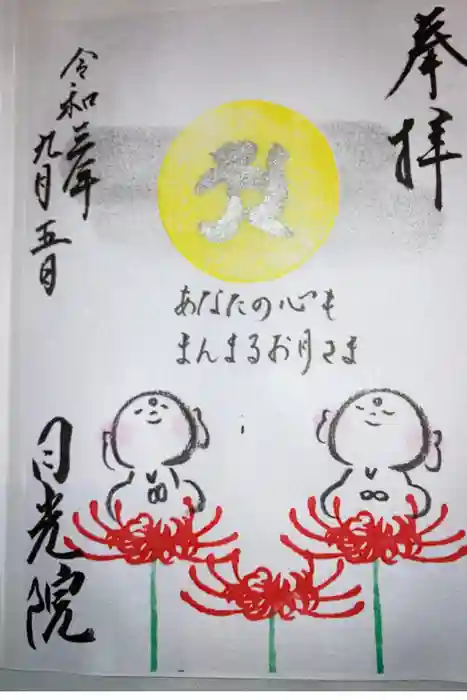 奉拝
あなたの心も
まんまるお月さま
令和三年
九月五日
日光院